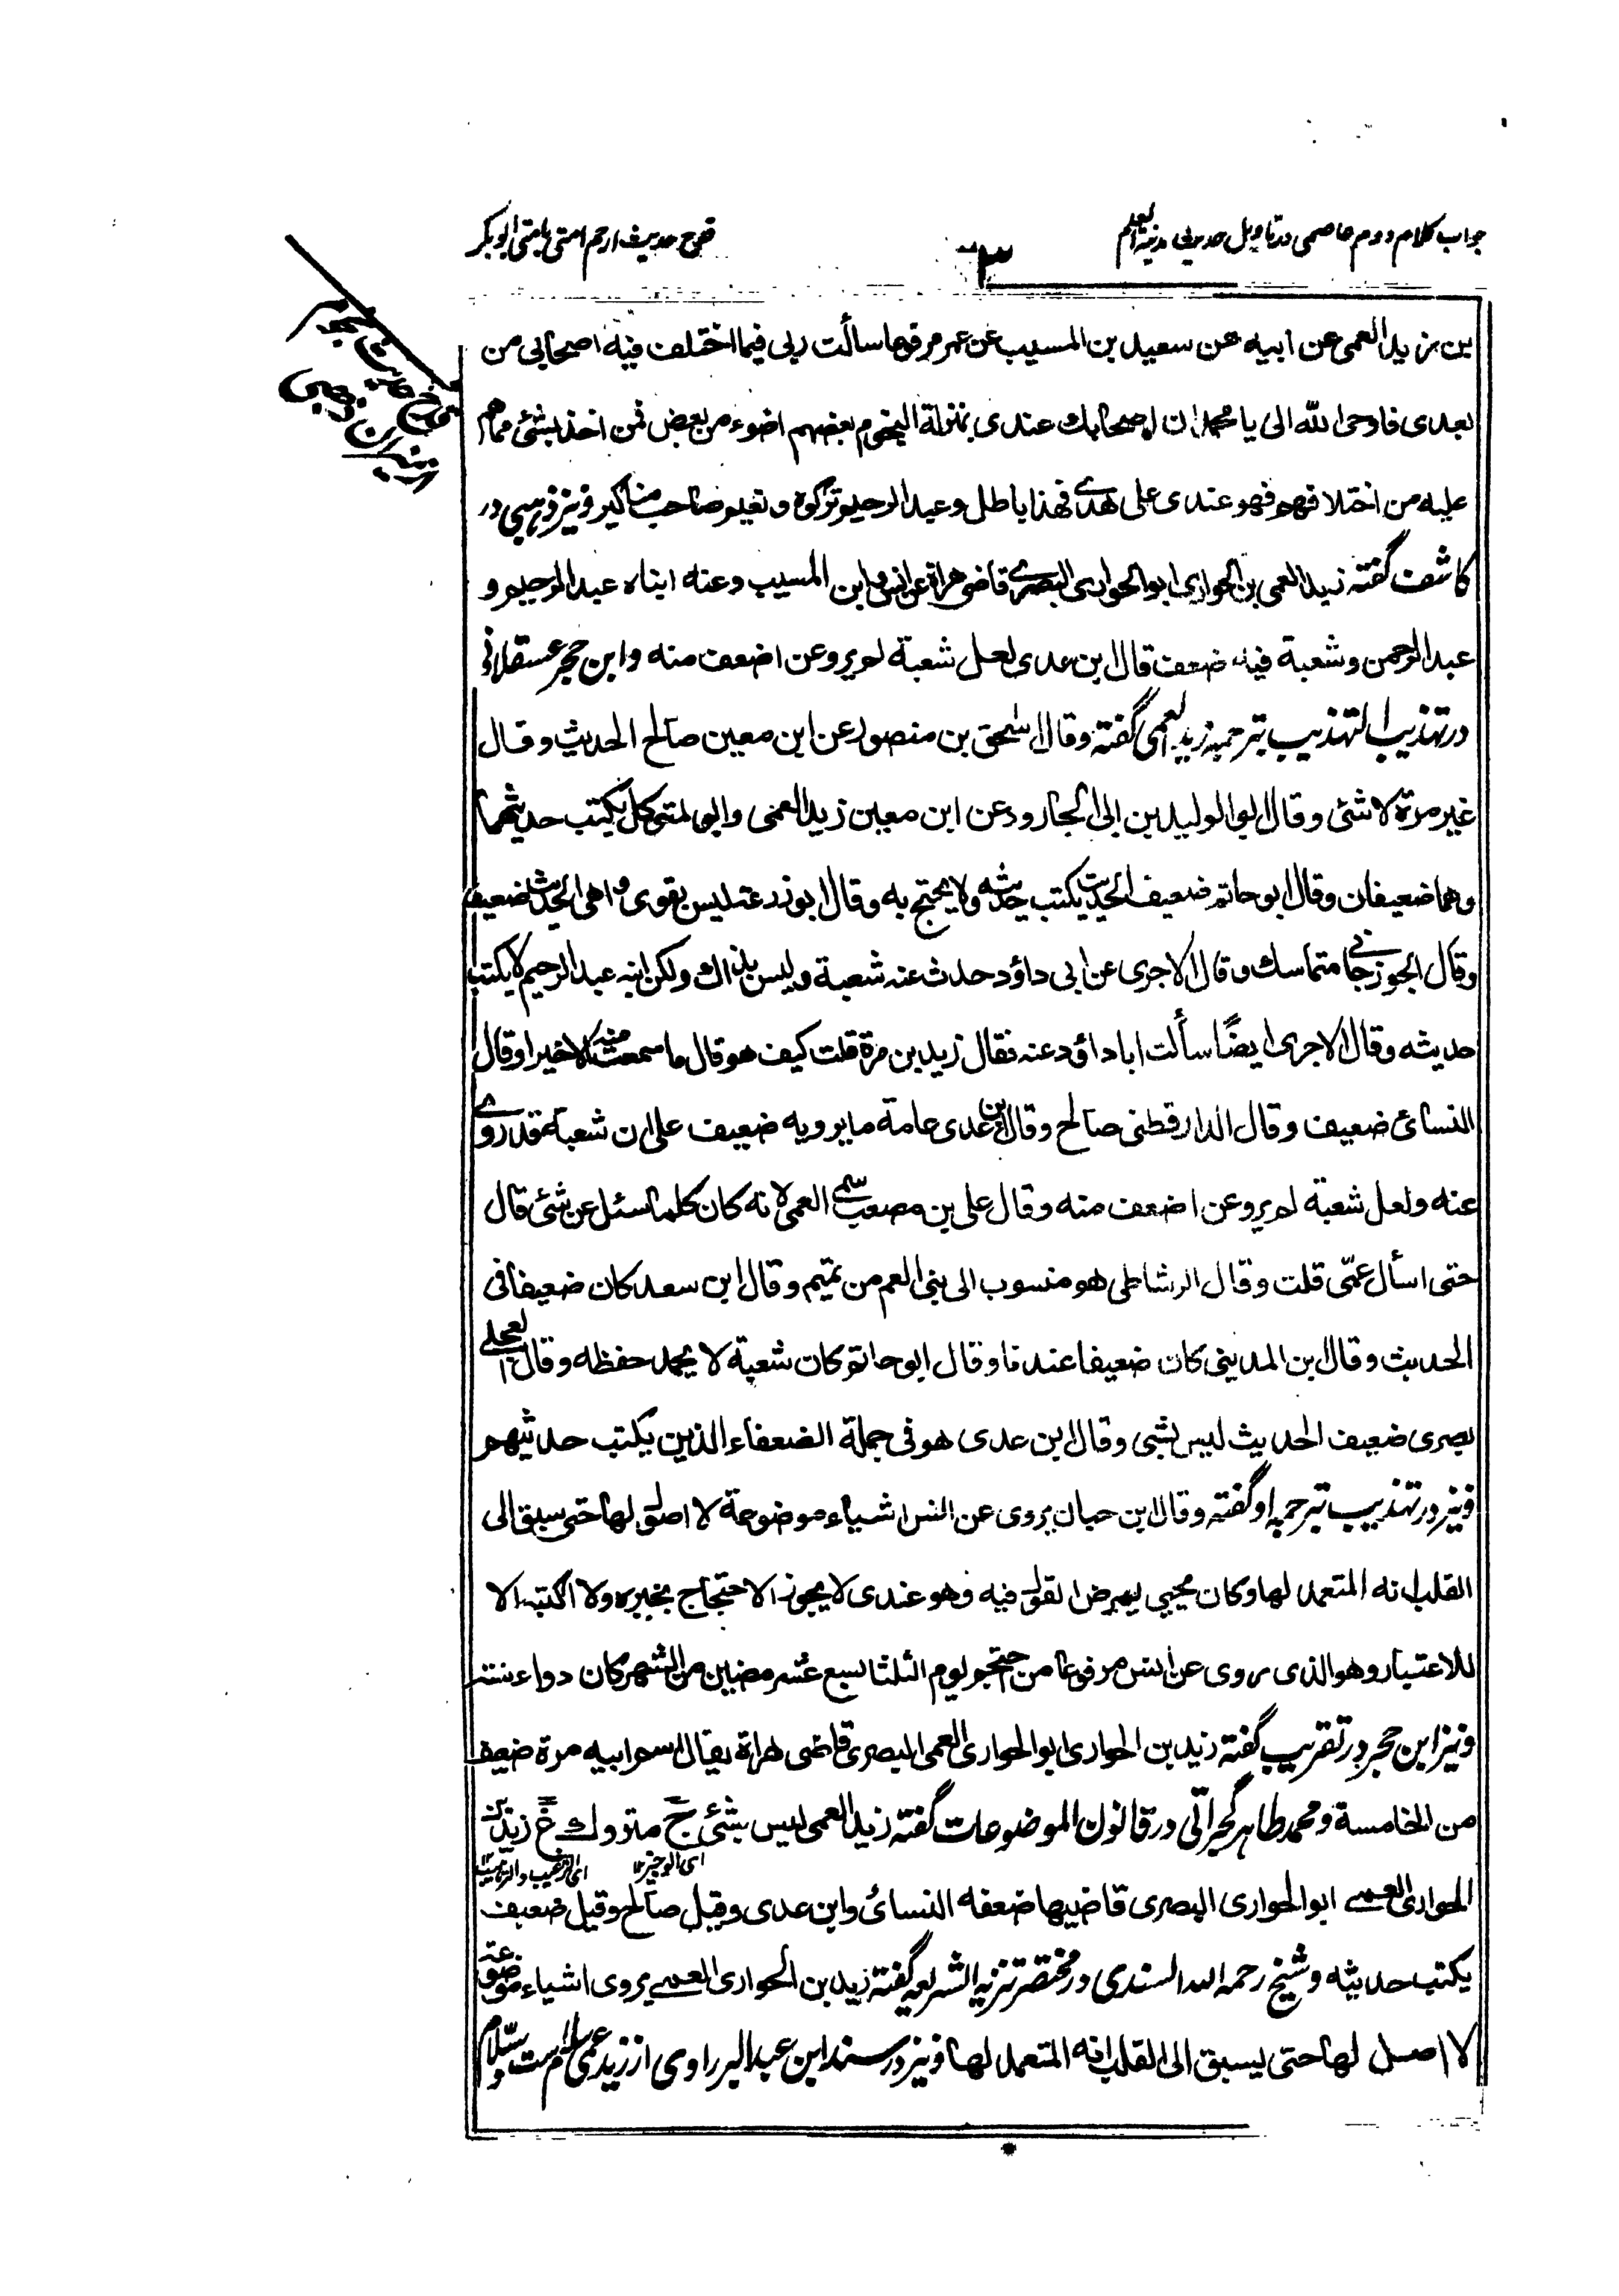 جواب کلام دوم عاصمی در تاویل حدیث مدینة العلم
قدح حدیث ارحم امتی بامتی ابوبکر
بن زيد العمى عن ابيه عن سعيد بن المسيب عن عمر مرفوعا سألت ربى فيما اختلف فيه اصحابى من
بعدى فاوحى الله الى يا محمد ان اصحابك عندى بمنزلة النجوم بعضهم اضوء من بعض فمن اخذ بشئ مما هم
عليه من اختلافهم فهو عندى على هدى فهذا باطل وعبد الرحيم تركوه ونعيم صاحب مناكير ونیز ذهبی در
کاشف گفته زيد العمى بن الحوارى ابو الحوارى البصرى قاضى هراة عن انس وابن المسيب وعنه ابناه عبد الرحيم و
عبد الرحمن وشعبة فيه ضعف قال ابن عدى لعل شعبة لم يرو عن اضعف منه وابن حجر عسقلانی
در تهذیب التهذیب بترجمه زید العمی گفته وقال اسحق بن منصور عن ابن معين صالح الحديث وقال
غير مرة لا شئ وقال ابو الوليد بن ابى الجارود عن ابن معين زيد العمى وابو المتوكل يكتب حديثهما
وهما ضعيفان وقال ابو حاتم ضعيف الحديث يكتب حديثه ولا يحتج به وقال ابو زرعة ليس بقوى واهى الحديث ضعيف
وقال الجوزجانى متماسك وقال الاجرى عن ابى داؤد حدث عنه شعبة وليس بذاك ولكن ابنه عبد الرحيم لا يكتب
حديثه وقال الاجرى ايضًا سألت ابا داؤد عنه فقال زيد بن مرة قلت كيف هو قال ما سمعت منه الا خيرا وقال
النسائ ضعيف وقال الدارقطنى صالح وقال ابن عدى عامة ما يرويه ضعيف على ان شعبة قد روى
عنه ولعل شعبة لم يرو عن اضعف منه وقال على بن مصعب سمى العمى لانه كان كلما سئل عن شئ قال
حتى اسأل عمّى قلت وقال الرشاطى هو منسوب الى بنى العم من تميم وقال ابن سعد كان ضعيفا فى
الحديث وقال ابن المدينى كان ضعيفا عندنا وقال ابو حاتم كان شعبة لا يحمد حفظه وقال العجلى
بصرى ضعيف الحديث ليس بشى وقال ابن عدى هو فى جملة الضعفاء الذين يكتب حديثهم
ونیز در تهذیب بترجمه او گفته وقال ابن حبان يروى عن انس اشياء موضوعة لا اصول لها حتى سبق الى
القلب انه المتعمد لها وكان يحيى يمرض القول فيه وهو عندى لا يجوز الاحتجاج بخبره ولا اكتبه الا
للاعتبار وهو الذى روى عن انس مرفوعا من احتجم يوم الثلثا لسبع عشر مضين من الشهر كان دواء سنة
ونیز ابن حجر در تقریب گفته زيد بن الحوارى ابو الحوارى العمى البصرى قاضى هراة يقال اسم ابيه مرة ضعيف
من الخامسة ومحمد طاهر گجراتی در قانون الموضوعات گفته زيد العمى ليس بشئ ج متروك غ زيد بن
اى الوجيز ١٢
اى الترغيب والترهيب ١٢
الحوارى العمى ابو الحوارى البصرى قاضيها ضعفه النسائ وابن عدى وقيل صالح وقيل ضعيف
يكتب حديثه وشیخ رحمه الله السندی در مختصر تنزیه الشریعه گفته زيد بن الحوارى العمى يروى اشياء موضوعة
لا اصل لها حتى يسبق الى القلب انه المتعمد لها ونیز در سند ابن عبد البر راوی از زید عمی سلام ست وسلّام